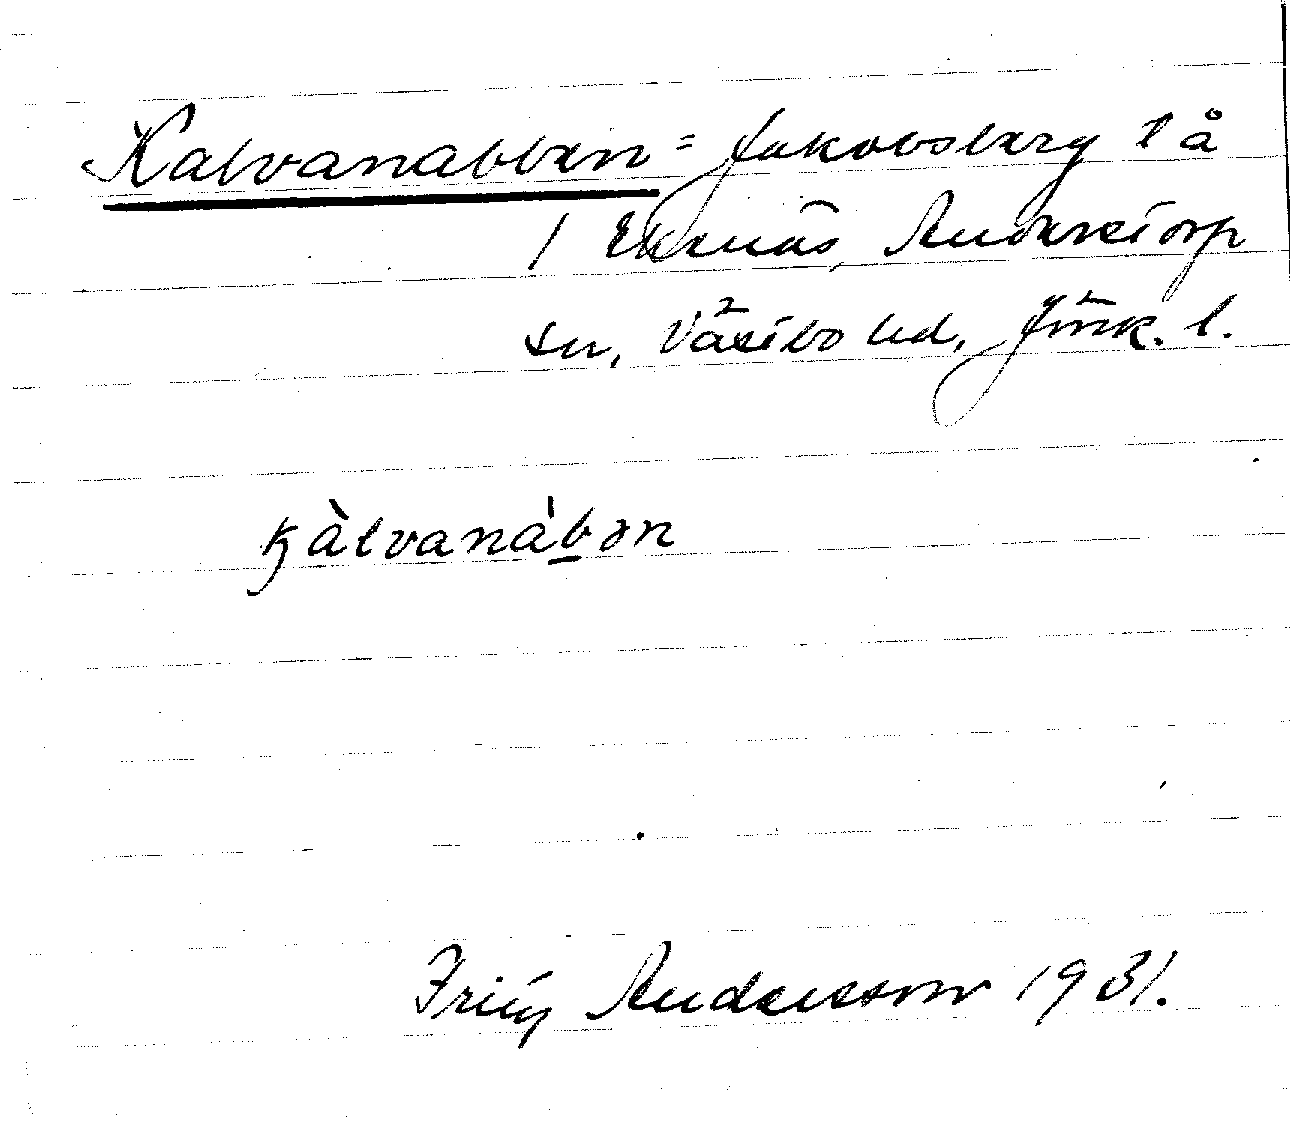 Kalvanabben = Jakobsberg lå
/ Ekenäs, Anderstorp
sn, Västbo hd, Jönk. l.
kàlvanàbən
Fritz Andersson 1931.